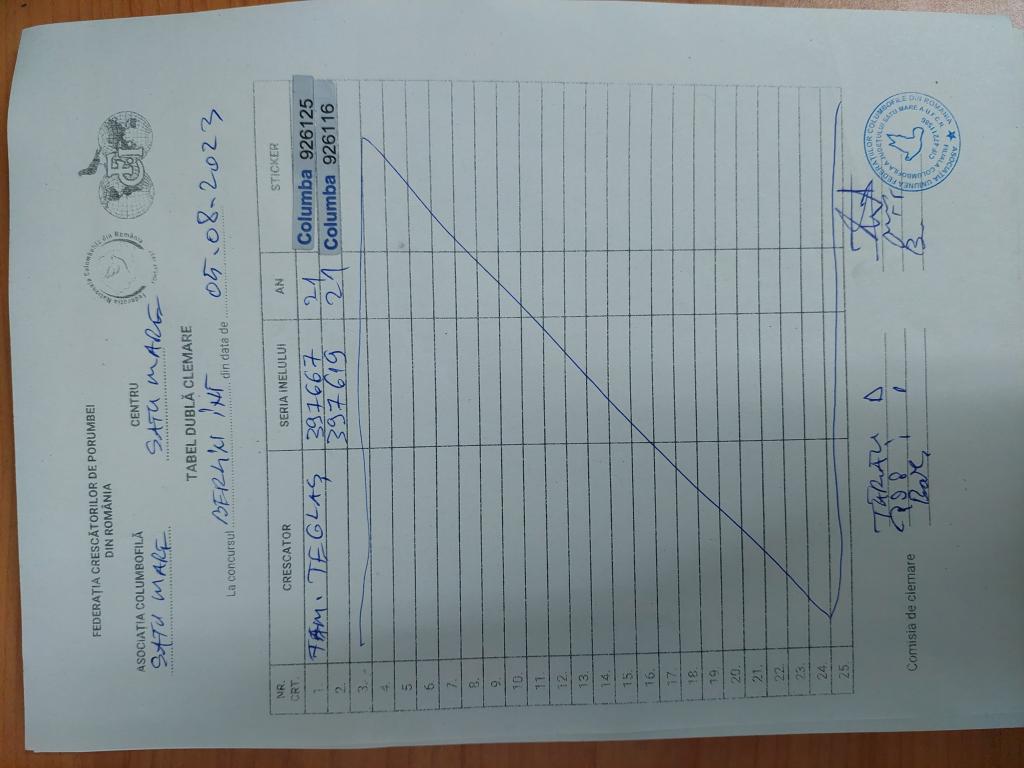 FEDERAȚIA CRESCĂTORILOR DE PORUMBEI
DIN ROMÂNIA
ASOCIAȚIA COLUMBOFILĂ CENTRU
SATU MARE SATU MARE
TABEL DUBLĂ CLEMARE
La concursul BERLIN INT din data de 05.08.2023
NR. CRT. CRESCATOR SERIA INELULUI AN STICKER
1. FAM. TEGLAȘ 397667 21 Columba 926125
2. 397619 21 Columba 926116
3.
4.
5
6.
7.
8.
9.
10.
11.
12.
13.
14.
15.
16.
17.
18.
19.
20.
21.
22.
23.
24.
25.
Comisia de clemare
ASOCIAȚIA UNIUNEA FEDERAȚIILOR COLUMBOFILE DIN ROMANIA
FILIALA COLUMBOFILĂ A JUDEȚULUI SATU MARE A U.F.C.R.